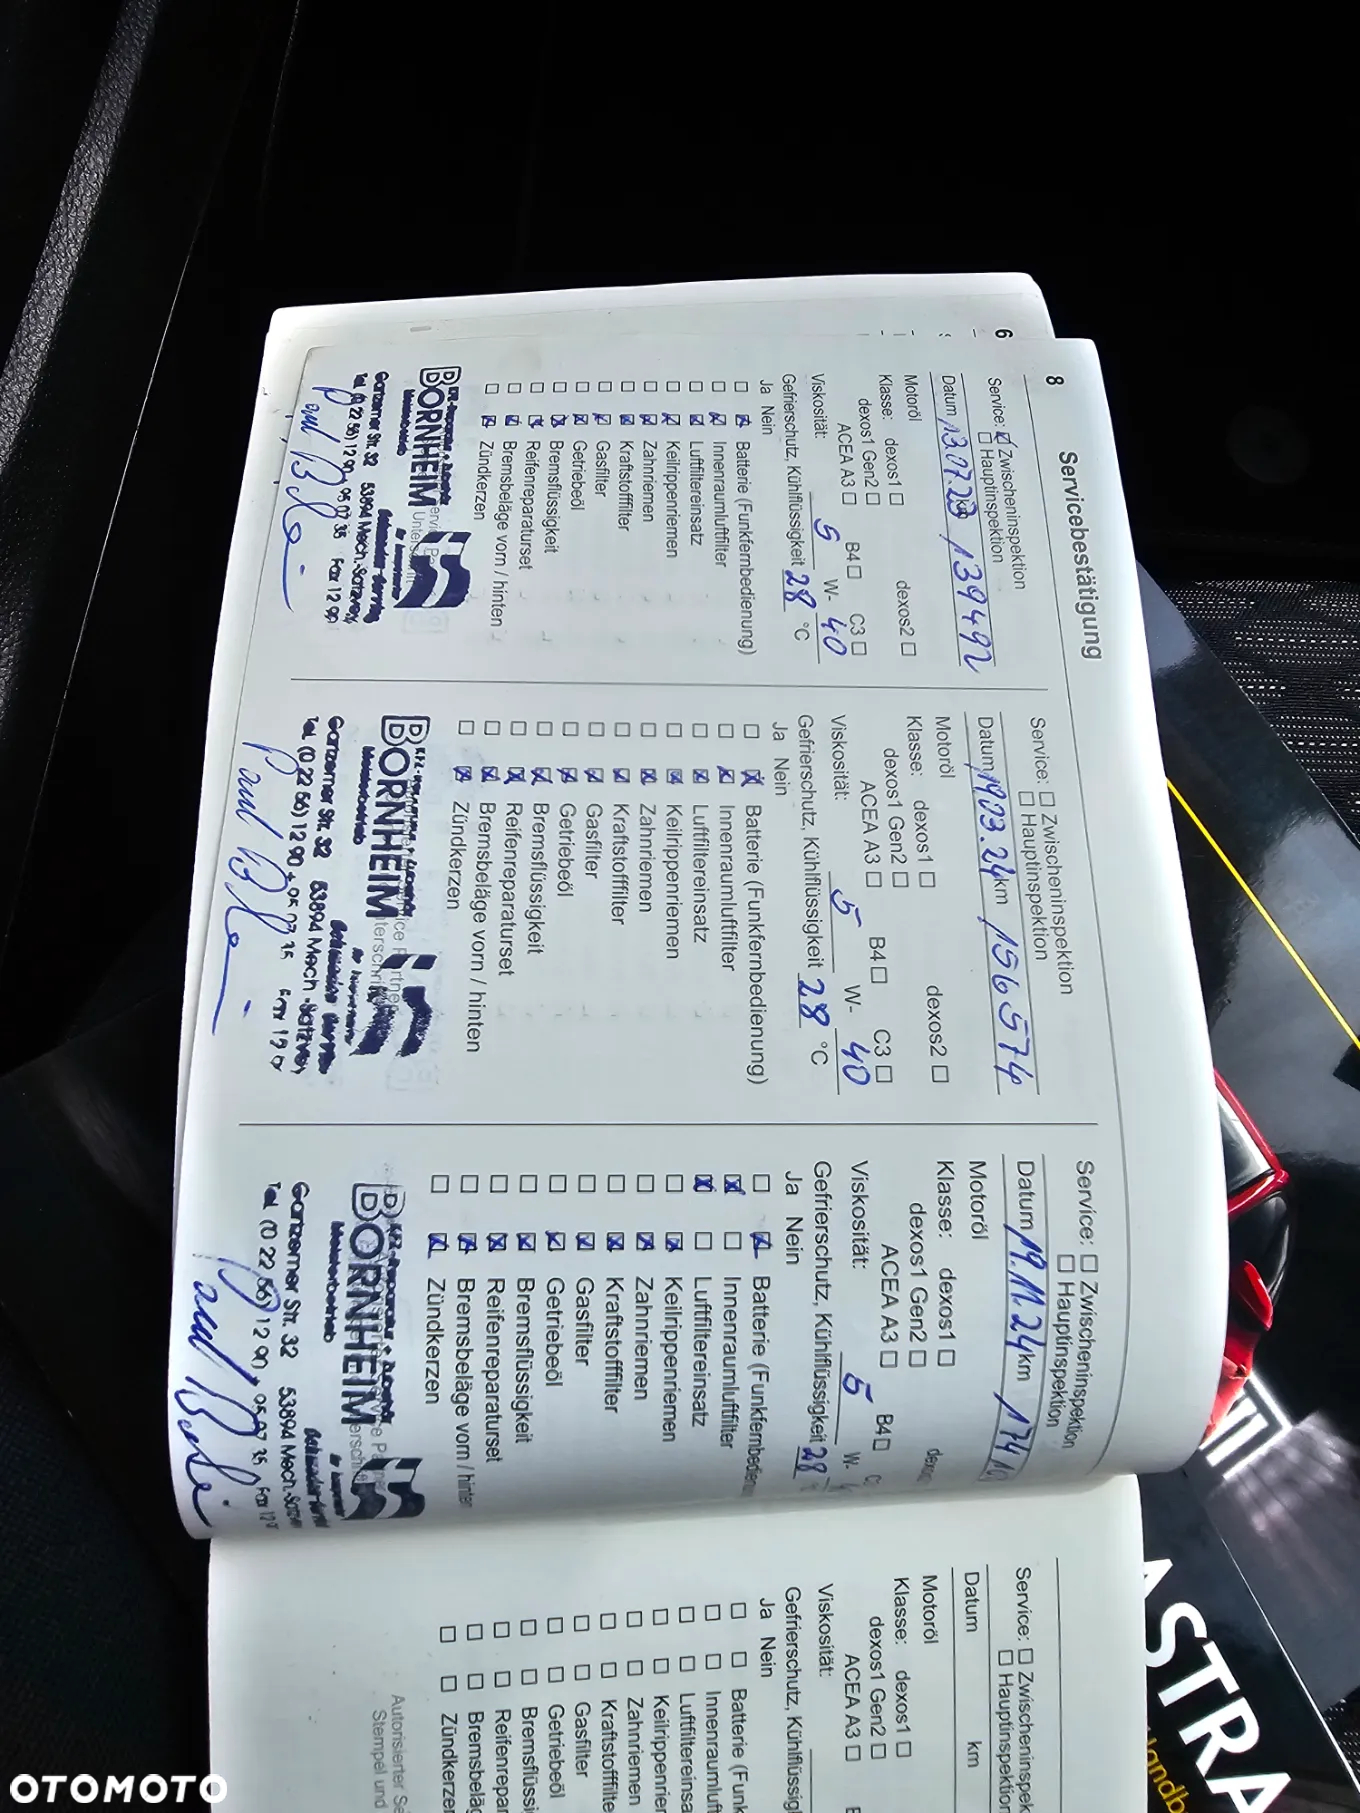 6
8
Servicebestätigung
Service: Zwischeninspektion
Hauptinspektion
Datum 13.07.23 km 139492
Motoröl
Klasse: dexos1 dexos2
dexos1 Gen2
ACEA A3 B4 C3
Viskosität: 5 W- 40
Gefrierschutz, Kühlflüssigkeit 28 °C
Ja Nein
Batterie (Funkfernbedienung)
Innenraumluftfilter
Luftfiltereinsatz
Keilrippenriemen
Zahnriemen
Kraftstofffilter
Gasfilter
Getriebeöl
Bremsflüssigkeit
Reifenreparaturset
Bremsbeläge vorn / hinten
Zündkerzen
BORNHEIM
Meisterbetrieb
Garzemer Str. 32 53894 Mech.-Satzvey
Tel. (0 22 56) 12 90 + 95 07 35 Fax 12 90
Service: Zwischeninspektion
Hauptinspektion
Datum 19.03.24 km 156574
Motoröl
Klasse: dexos1 dexos2
dexos1 Gen2
ACEA A3 B4 C3
Viskosität: 5 W- 40
Gefrierschutz, Kühlflüssigkeit 28 °C
Ja Nein
Batterie (Funkfernbedienung)
Innenraumluftfilter
Luftfiltereinsatz
Keilrippenriemen
Zahnriemen
Kraftstofffilter
Gasfilter
Getriebeöl
Bremsflüssigkeit
Reifenreparaturset
Bremsbeläge vorn / hinten
Zündkerzen
BORNHEIM
Meisterbetrieb
Garzemer Str. 32 53894 Mech.-Satzvey
Tel. (0 22 56) 12 90 + 95 07 35
Service: Zwischeninspektion
Hauptinspektion
Datum 19.11.24 km 174
Motoröl
Klasse: dexos1
dexos1 Gen2
ACEA A3 B4
Viskosität: 5 W-
Gefrierschutz, Kühlflüssigkeit 28
Ja Nein
Batterie (Funkfernbedien
Innenraumluftfilter
Luftfiltereinsatz
Keilrippenriemen
Zahnriemen
Kraftstofffilter
Gasfilter
Getriebeöl
Bremsflüssigkeit
Reifenreparaturset
Bremsbeläge vorn / hinten
Zündkerzen
BORNHEIM
Meisterbetrieb
Garzemer Str. 32 53894 Mech.-Satzvey
Tel. (0 22 56) 12 90 + 95 07 35 Fax 12 9
Service: Zwischeninspek
Hauptinspektion
Datum km
Motoröl
Klasse: dexos1
dexos1 Gen2
ACEA A3
Viskosität:
Gefrierschutz, Kühlflüssigkei
Ja Nein
Batterie (Funk
Innenraumluft
Luftfiltereinsat
Keilrippenriem
Zahnriemen
Kraftstofffilte
Gasfilter
Getriebeöl
Bremsflüssig
Reifenrepar
Bremsbeläg
Zündkerzen
Autorisierter Se
Stempel und
ASTRA
OTOMOTO